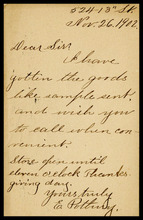 524-13th St.
Nov. 26, 1902.
Dear Sir:
I have
gotten the goods
like sample sent,
and wish you
to call when con-
venient.
Store open until
eleven o'clock Thanks-
giving day.
Yours truly
E.